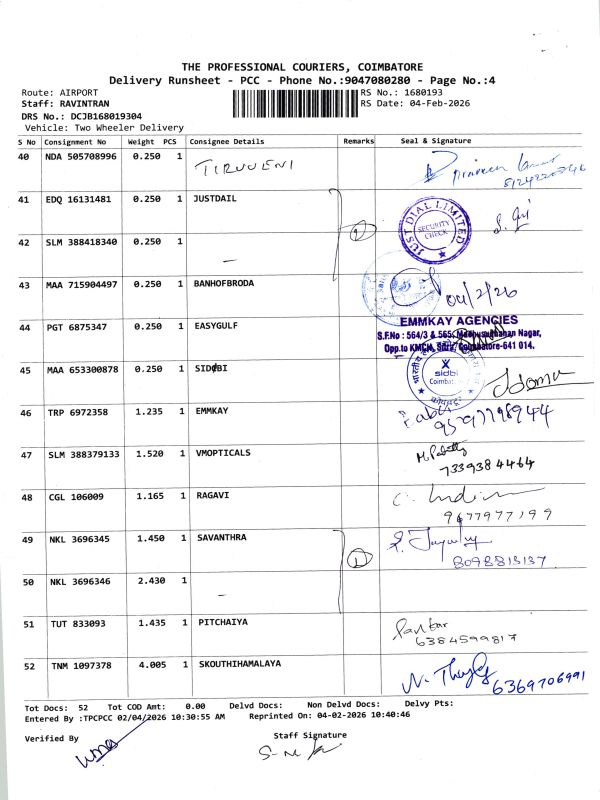 THE PROFESSIONAL COURIERS, COIMBATORE
Delivery Runsheet - PCC - Phone No.:9047080280 - Page No.:4
Route: AIRPORT RS No.: 1680193
Staff: RAVINTRAN RS Date: 04-Feb-2026
DRS No.: DCJB168019304
Vehicle: Two Wheeler Delivery
S No Consignment No Weight PCS Consignee Details Remarks Seal & Signature
40 NDA 505708996 0.250 1 TIRUVENI
41 EDQ 16131481 0.250 1 JUSTDAIL
JUST DIAL LIMITED
SECURITY CHECK
42 SLM 388418340 0.250 1 —
43 MAA 715904497 0.250 1 BANHOFBRODA
04/2/26
44 PGT 6875347 0.250 1 EASYGULF
EMMKAY AGENCIES
S.F.No : 564/3 & 565, Nagar,
Opp.to KMCH, Coimbatore-641 014.
45 MAA 653300878 0.250 1 SIDBI
sidbi
46 TRP 6972358 1.235 1 EMMKAY
9597798944
47 SLM 388379133 1.520 1 VMOPTICALS
7339384464
48 CGL 106009 1.165 1 RAGAVI
9677977199
49 NKL 3696345 1.450 1 SAVANTHRA
8098815137
50 NKL 3696346 2.430 1 —
51 TUT 833093 1.435 1 PITCHAIYA
6384599817
52 TNM 1097378 4.005 1 SKOUTHIHAMALAYA
6369706991
Tot Docs: 52 Tot COD Amt: 0.00 Delvd Docs: Non Delvd Docs: Delvy Pts:
Entered By :TPCPCC 02/04/2026 10:30:55 AM Reprinted On: 04-02-2026 10:40:46
Verified By Staff Signature